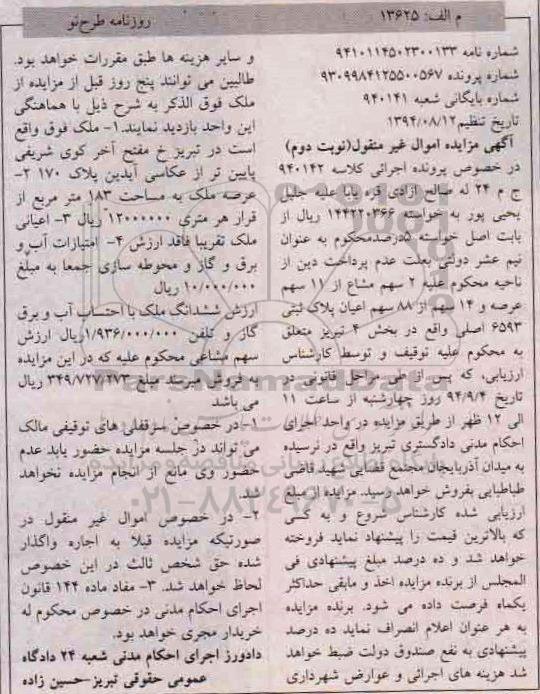 م الف: ۱۳۶۲۵
روزنامه طرح‌نو
شماره نامه ۹۴۱۰۱۱۴۵۰۲۳۰۰۱۳۳
شماره پرونده ۹۳۰۹۹۸۴۱۲۵۵۰۰۵۶۷
شماره بایگانی شعبه ۹۴۰۱۴۱
تاریخ تنظیم۱۳۹۴/۰۸/۱۲
آگهی مزایده اموال غیر منقول(نوبت دوم)
در خصوص پرونده اجرائی کلاسه ۹۴۰۱۴۲
ج م ۲۴ له صالح ازادی قره بابا علیه جلیل
یحیی پور به خواسته ۱۴۴۲۲۰۳۶۶ ریال از
بابت اصل خواسته ۵درصدمحکوم به عنوان
نیم عشر دولتی بعلت عدم پرداخت دین از
ناحیه محکوم علیه ۲ سهم مشاع از ۱۱ سهم
عرصه و ۱۴ سهم از ۸۸ سهم اعیان پلاک ثبتی
۶۵۹۳ اصلی واقع در بخش ۴ تبریز متعلق
به محکوم علیه توقیف و توسط کارشناس
ارزیابی، که پس از طی مراحل قانونی در
تاریخ ۹۴/۹/۴ روز چهارشنبه از ساعت ۱۱
الی ۱۲ ظهر از طریق مزایده در واحد اجرای
احکام مدنی دادگستری تبریز واقع در نرسیده
به میدان آذربایجان مجتمع قضایی شهید قاضی
طباطبایی بفروش خواهد رسید. مزایده از مبلغ
ارزیابی شده کارشناس شروع و به کسی
که بالاترین قیمت را پیشنهاد نماید فروخته
خواهد شد و ده درصد مبلغ پیشنهادی فی
المجلس از برنده مزایده اخذ و مابقی حداکثر
یکماه فرصت داده می شود. برنده مزایده
به هر عنوان اعلام انصراف نماید ده درصد
پیشنهادی به نفع صندوق دولت ضبط خواهد
شد هزینه های اجرائی و عوارض شهرداری
و سایر هزینه ها طبق مقررات خواهد بود.
طالبین می توانند پنج روز قبل از مزایده از
ملک فوق الذکر به شرح ذیل با هماهنگی
این واحد بازدید نمایند.۱- ملک فوق واقع
است در تبریز خ مفتح آخر کوی شریفی
پایین تر از عکاسی آیدین پلاک ۱۷۰ ۲-
عرصه ملک به مساحت ۱۸۳ متر مربع از
قرار هر متری ۱۲۰۰۰۰۰۰ ریال ۳- اعیانی
ملک تقریبا فاقد ارزش ۴- امتیازات آب و
برق و گاز و محوطه سازی جمعا به مبلغ
۱۰/۰۰۰/۰۰۰ ریال
ارزش ششدانگ ملک با احتساب آب و برق
گاز و تلفن ۱/۹۳۶/۰۰۰/۰۰۰ریال ارزش
سهم مشاعی محکوم علیه که در این مزایده
به فروش میرسد مبلغ ۳۴۹/۷۲۷/۲۷۳ ریال
می باشد
۱- در خصوص سرقفلی های توقیفی مالک
می تواند در جلسه مزایده حضور یابد عدم
حضور وی مانع از انجام مزایده نخواهد
شد.
۲- در خصوص اموال غیر منقول در
صورتیکه مزایده قبلا به اجاره واگذار
شده حق شخص ثالث در این خصوص
لحاظ خواهد شد. ۳- مفاد ماده ۱۴۴ قانون
اجرای احکام مدنی در خصوص محکوم له
خریدار مجری خواهد بود.
دادورز اجرای احکام مدنی شعبه ۲۴ دادگاه
عمومی حقوقی تبریز-حسین زاده
ParsNamadData
۰۲۱-۸۸۳۴۹۶۷۰-۵